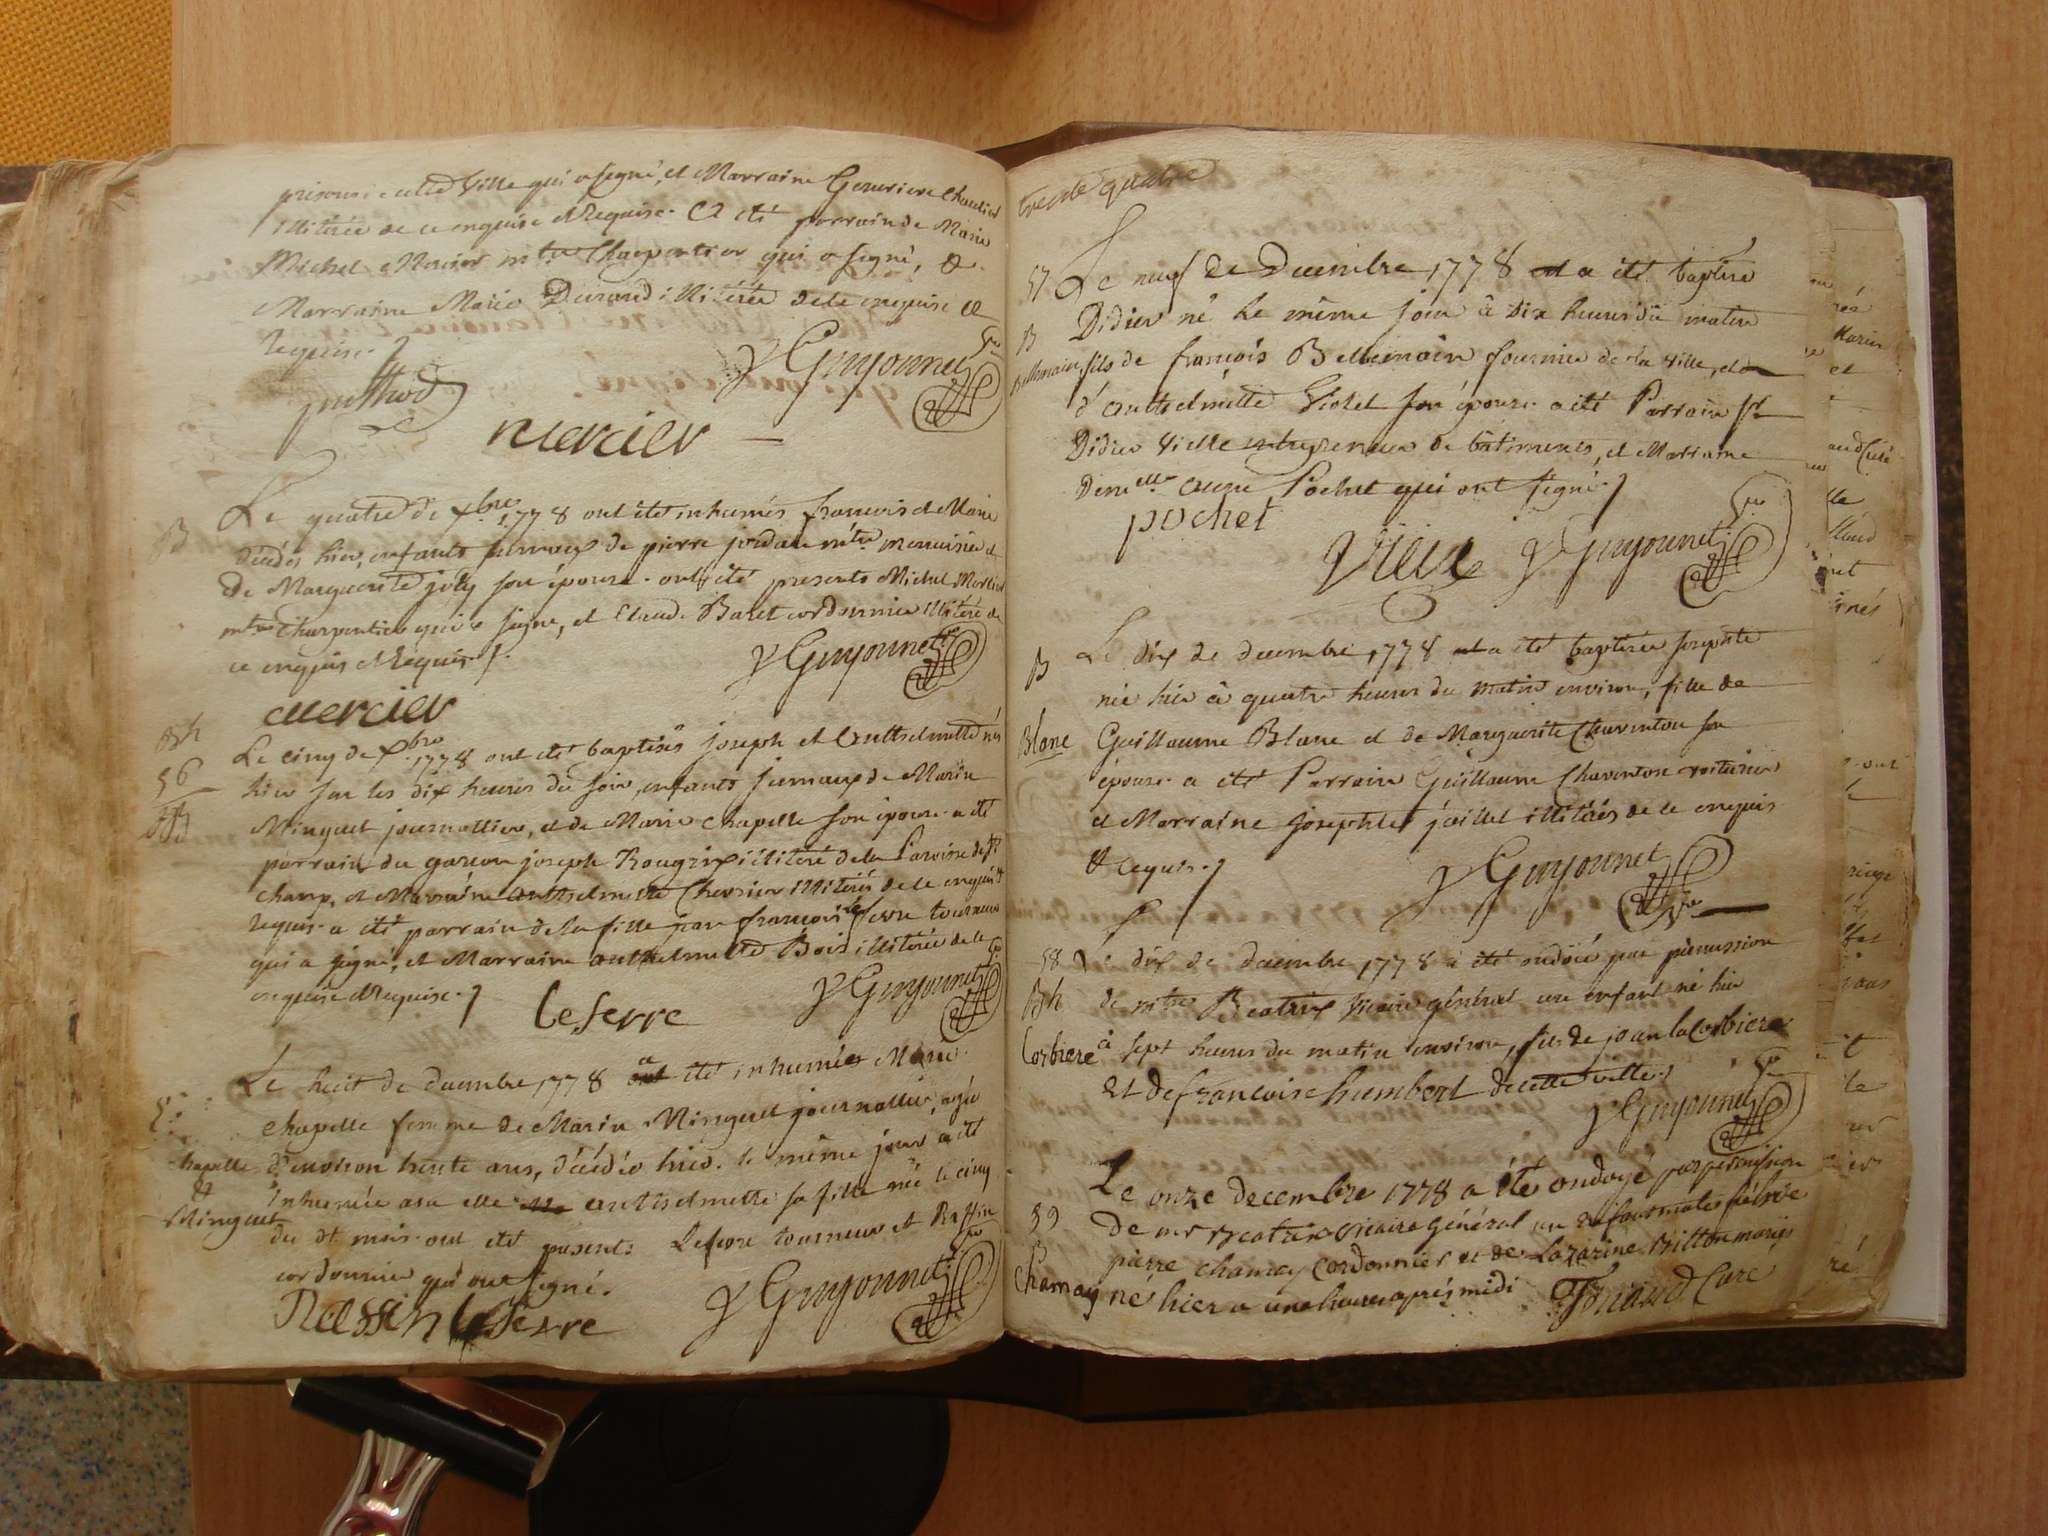 cette Ville qui a signé, et Marraine Genevieve
illitérée de ce enquise et Requise. a été parrain de Marie
Michel Mercier mtre Charpentier qui a signé, &
Marraine Marie Durand illitérée de ce enquise &
Requise./.
y Guyonnet
mercier
Le quatre de xbre 1778 ont été inhumés francois et Marie
décédés hier, enfants jumeaux de pierre jordan mtre menuisier et
de Marguerite joly son épouse. ont été presents Michel Mercier
mtre Charpentier qui a signé, et Claude Baret cordonnier illitéré de
ce enquis et Requis./.
y Guyonnet
mercier
56
Le cinq de xbre 1778 ont été baptisés joseph et Anthelmette nés
hier sur les dix heures du soir, enfants jumeaux de Marin
Minguet journallier, et de Marie chapelle son épouse. a été
parrain du garçon joseph illitéré de la Paroisse de
champ, et Marraine anthelmette illitérés de ce enquis &
requis. a été parrain de la fille jean francois leserre tourneur
qui a signé, et Marraine anthelmette Bois illitérée de ce
enquise et Requise./.
y Guyonnet
leserre
Le huit de decembre 1778 a été inhumée Marie
chapelle femme de Marin Minguet journallier, agée
d'environ trente ans, décédée hier. le même jour a été
inhumée avec elle anthelmette sa fille née le cinq
du dt mois. ont été presents Leserre tourneur et Rassin
cordonnier qui ont signé.
chapelle
&
Minguet
y Guyonnet
Rassin leserre
trente quatre
57 Le neuf de Decembre 1778 a été baptisé
B Didier né le même jour à dix heures du matin
Bellemain fils de françois Bellemain fournier de la ville, et
d'Anthelmette Violet son épouse. a été Parrain sr
Didier Vielle entrepreneur de batiments, et Marraine
Demelle anne Pochet qui ont signé./.
pochet
y Guyonnet
B Le dix de decembre 1778 a été baptisée josephte
née hier à quatre heures du matin environ, fille de
Blanc Guillaume Blanc et de Marguerite Charvinton son
épouse. a été Parrain Guillaume Charvinton voiturier
et Marraine josephte jaillet illitérés de ce enquis
& requis./.
y Guyonnet
58 Le dix de decembre 1778 a été ondoié par permission
Bh de mtre Beatrix Vicaire général un enfant né hier
Corbiere à sept heures du matin environ, fils de jean la Corbiere
et de francoise humbert de cette ville./.
y Guyonnet
Le onze decembre 1778 a été ondoyé par permission
59 de mr Beatrix vicaire général un enfant male fils de
pierre chamay cordonnier et de Lazarine Billon mariés
Chamay né hier a une heure après midi
Curé